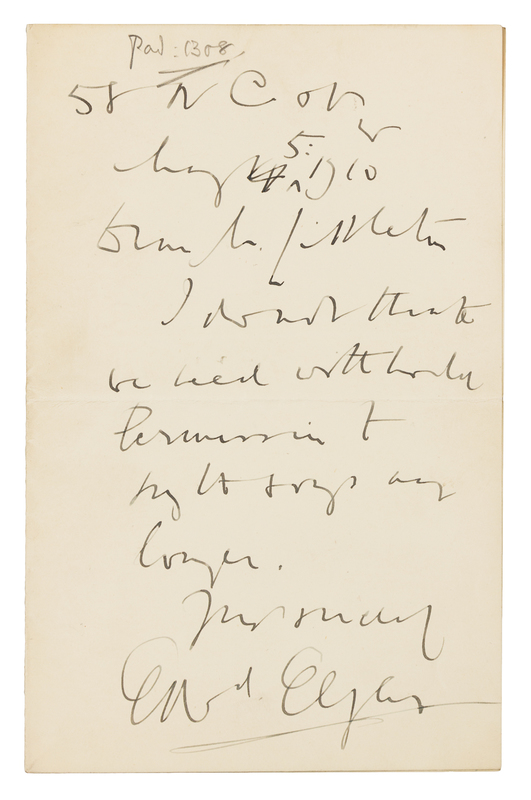 Pad: 1308
58 N C St
W
May 5: 1910
Dear Mr. Littleton
I do not think
we need withhold
permission to
sing the songs any
longer.
Yrs sincely
Edwd Elgar